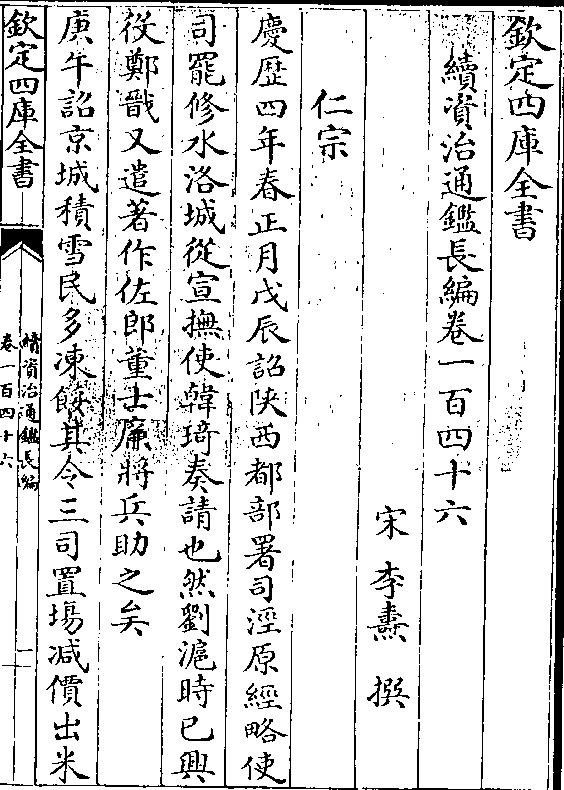 欽定四庫全書
續資治通鑑長編卷一百四十六
宋 李燾 撰
仁宗
慶歴四年春正月戊辰詔陜西都部署司涇原經略使
司罷修水洛城從宣撫使韓琦奏請也然劉滬時已興
役鄭戩又遣著作佐郎董士㢘將兵助之矣
庚午詔京城積雪民多凍餒其令三司置塲减價出米
欽定四庫全書
續資治通鑑長編
卷一百四十六
一